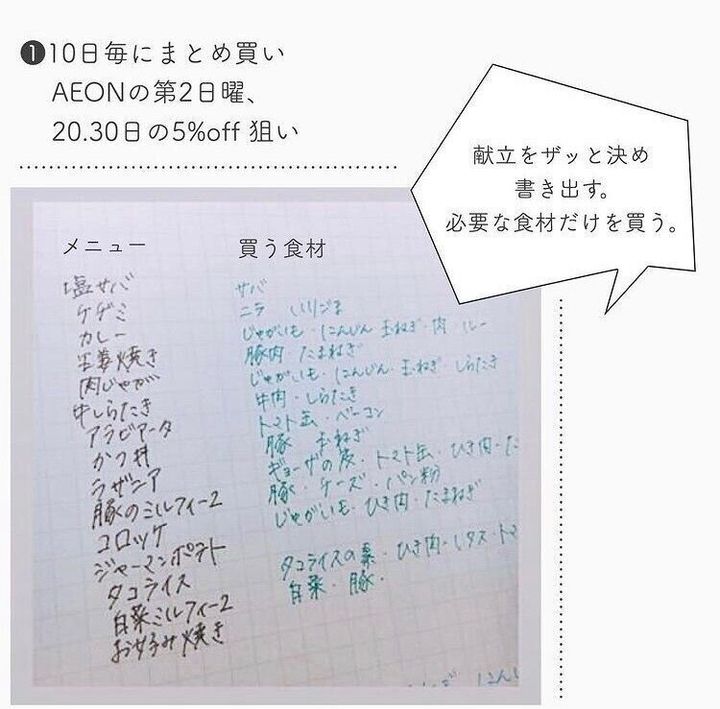 ❶10日毎にまとめ買い
AEONの第2日曜、
20.30日の5%off 狙い
献立をザッと決め
書き出す。
必要な食材だけを買う。
メニュー
買う食材
塩サバ
ケヂミ
カレー
生姜焼き
肉じゃが
牛しらたき
アラビアータ
かつ丼
ラザニア
豚のミルフィーユ
コロッケ
ジャーマンポテト
タコライス
白菜ミルフィーユ
お好み焼き
サバ
ニラ いりごま
じゃがいも・にんじん 玉ねぎ・肉・ルー
豚肉 たまねぎ
じゃがいも・にんじん 玉ねぎ しらたき
牛肉・しらたき
トマト缶・ベーコン
豚 玉ねぎ
ギョーザの皮・トマト缶・ひき肉・た
豚・チーズ・パン粉
じゃがいも・ひき肉・たまねぎ
タコライスの素・ひき肉・レタス・トマ
白菜・豚・
にんし